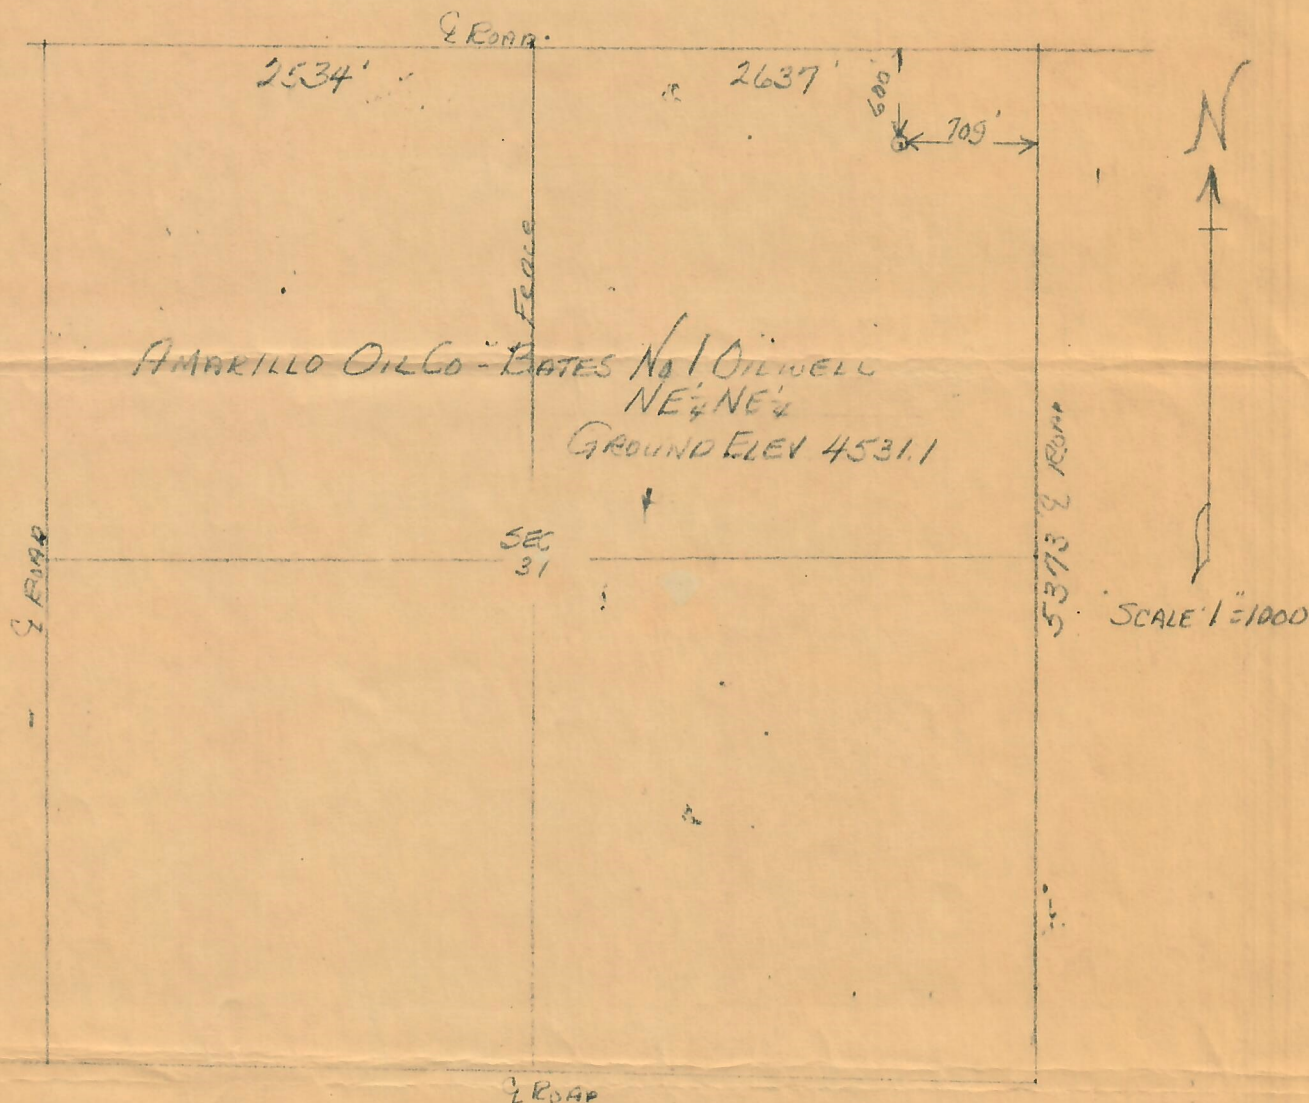 ℄ ROAD
2534' 2637'
600'
709'
N
FENCE
AMARILLO OIL CO - BATES No 1 OILWELL
NE¼NE¼
GROUND ELEV 4531.1
℄ ROAD
5373 ℄ ROAD
SEC
31
SCALE 1"=1000
℄ ROAD